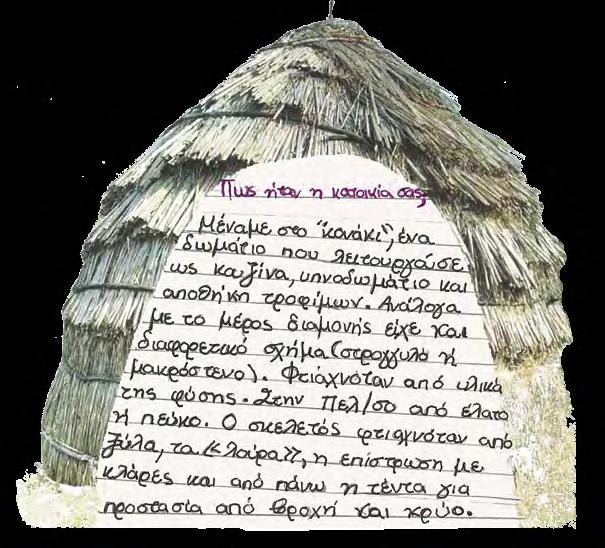 Πως ήταν η κατοικία σας;
Μέναμε στο "κονάκι", ένα
δωμάτιο που λειτουργούσε
ως κουζίνα, υπνοδωμάτιο και
αποθήκη τροφίμων. Ανάλογα
με το μέρος διαμονής είχε και
διαφορετικό σχήμα (στρογγυλό ή
μακρόστενο). Φτιάχνόταν από υλικά
της φύσης. Στην Πελ/σο από έλατο
ή πεύκο. Ο σκελετός φτιαχνόταν από
ξύλα, τα <<λούρα>>, η επίστρωση με
κλάρες και από πάνω η τέντα για
προστασία από βροχή και κρύο.